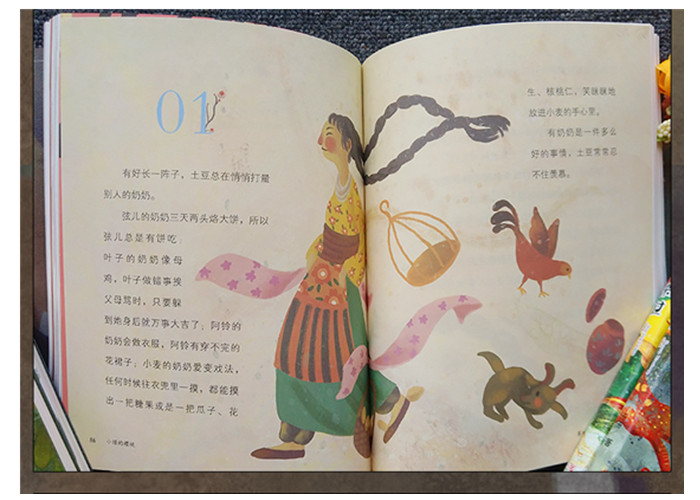 01
有好长一阵子，土豆总在悄悄打量
别人的奶奶。
弦儿的奶奶三天两头烙大饼，所以
弦儿总是有饼吃；
叶子的奶奶像母
鸡，叶子做错事挨
父母骂时，只要躲
到她身后就万事大吉了；阿铃的
奶奶会做衣服，阿铃有穿不完的
花裙子；小麦的奶奶爱变戏法，
任何时候往衣兜里一摸，都能摸
出一把糖果或是一把瓜子、花
生、核桃仁，笑眯眯地
放进小麦的手心里。
有奶奶是一件多么
好的事情，土豆常常忍
不住羡慕。